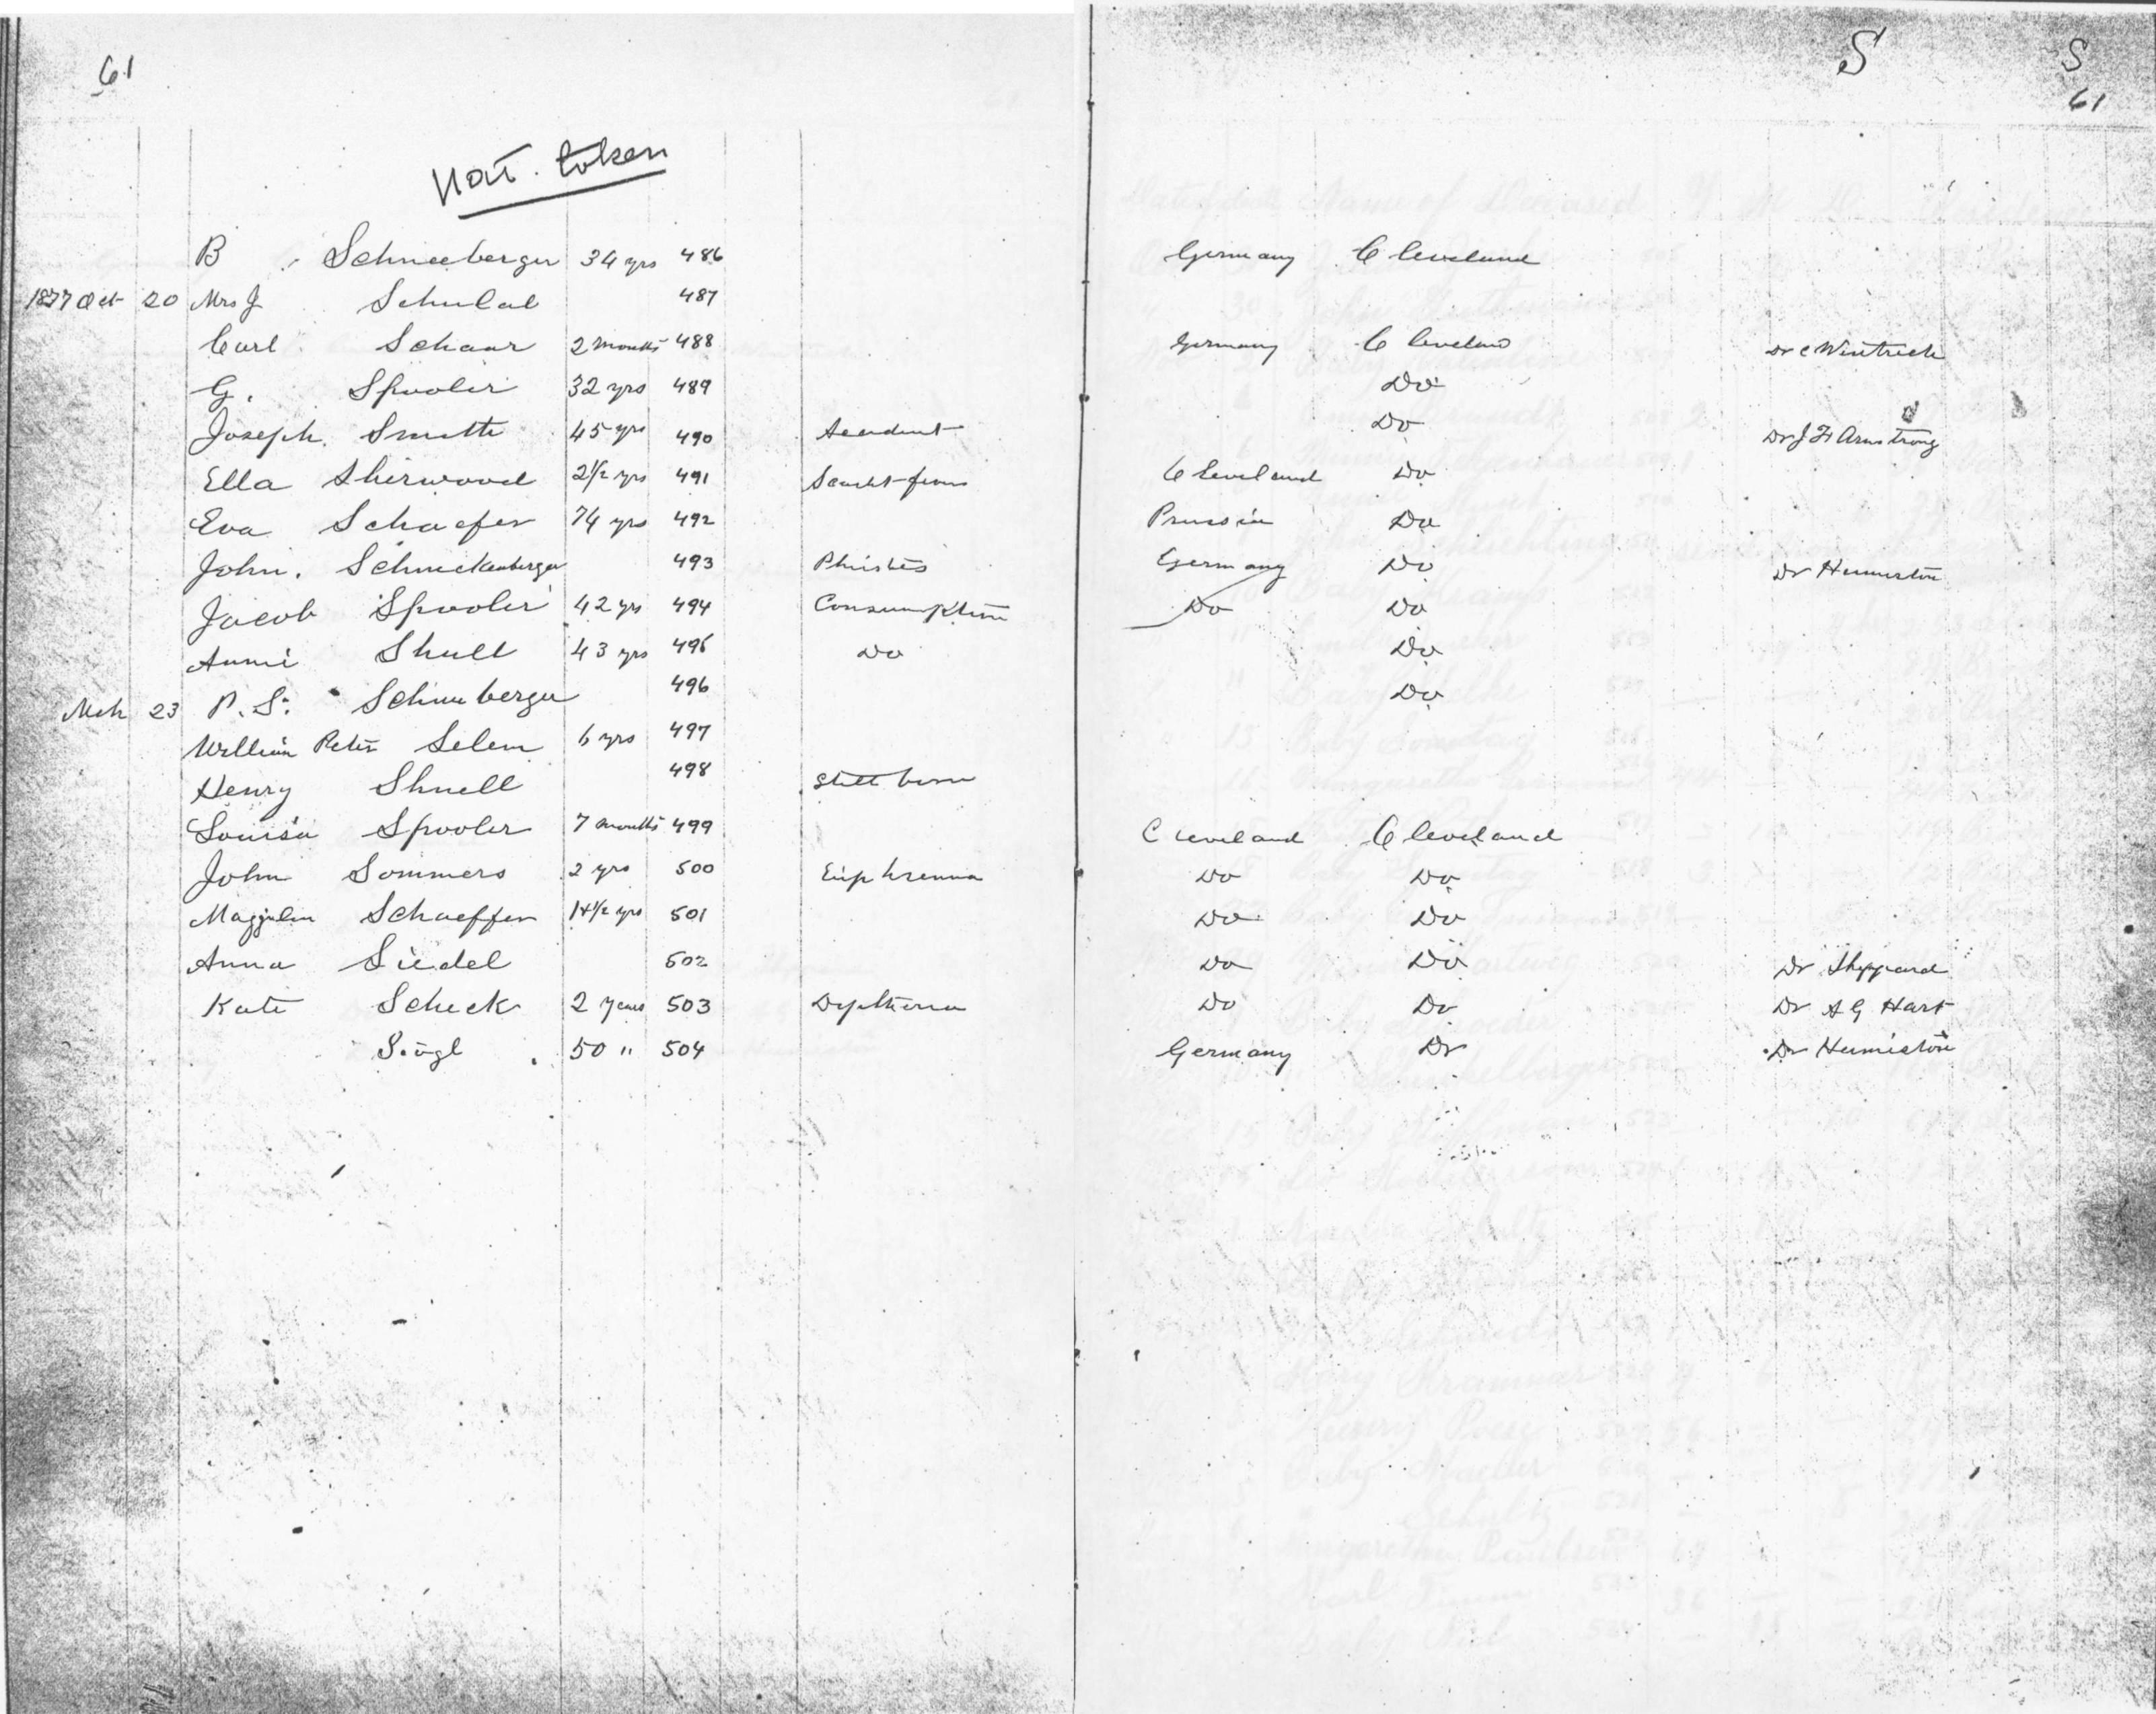 61 S S
61
not. token
B Schneeberger 34 yrs 486 Germany Cleveland
1877 Oct 20 Mrs J Schulal 487
Carl Schaar 2 months 488 Germany Cleveland Dr C Wintrich
G. Spooler 32 yrs 489 Do
Joseph. Smith 45 yrs 490 Accident Do Dr J F Armstrong
Ella Sherwood 2 1/2 yrs 491 Cleveland Do
Eva Schaefer 74 yrs 492 Prussia Do
John. Schneckenberger 493 Phisites Germany Do Dr Humiston
Jacob Spooler 42 yrs 494 Consumption Do Do
Annie Shull 43 yrs 495 Do Do
Mch 23 P. S. Schneeberger 496 Do
William Peter Selem 6 yrs 497
Henry Shnell 498 Still born
Louisa Spooler 7 months 499 Cleveland Cleveland
John Sommers 2 yrs 500 Do Do
Schaeffer 14 1/2 yrs 501 Do Do
Anna Siedel 502 Do Do Dr Sheppard
Kate Scheck 2 years 503 Dyptheria Do Do Dr A G Hart
Singl 50 " 504 Germany Do Dr Humiston